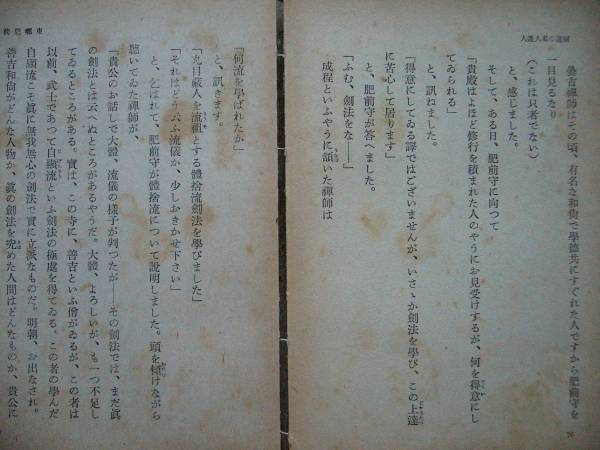 劍道の名人達人
曇吉禪師はその頃、有名な和尙で學德共にすぐれた人ですから肥前守を
一目見るなり
(これは只者でない)
と、感じました。
そして、ある日、肥前守に向つて
「貴殿はよほど修行を積まれた人のやうにお見受けするが、何を得意にし
てゐられる」
と、訊ねました。
「得意にしてゐる譯ではございませんが、いさゝか劍法を學び、この上達
に苦心して居ります」
と、肥前守が答へました。
「ふむ、劍法をな――」
成程といふやうに頷いた禪師は
76
東鄕肥前
「何流を學ばれたか」
と、訊きます。
「丸目藏人を流祖とする體捨流劍法を學びました」
「それはどう云ふ流儀か、少しおきかせ下さい」
と、乞はれて、肥前守が體捨流について說明しました。頭を傾けながら
聽いてゐた禪師が、
「貴公のお話しで大體、流儀の樣子が判つたが――その劍法では、まだ眞
の劍法とは云へぬところがあるやうだ。大體、よろしいが、も一つ不足し
てゐるところがある。實は、この寺に、善吉といふ僧がゐるが、この者は
以前、武士であつて自顯流といふ劍法の極處を得てゐる。この者の學んだ
自顯流こそ眞に無我無心の劍法で實に立派なものだ。明朝、お出なされ。
善吉和尙がどんな人物か、眞の劍法を究めた人間はどんなものか、貴公に